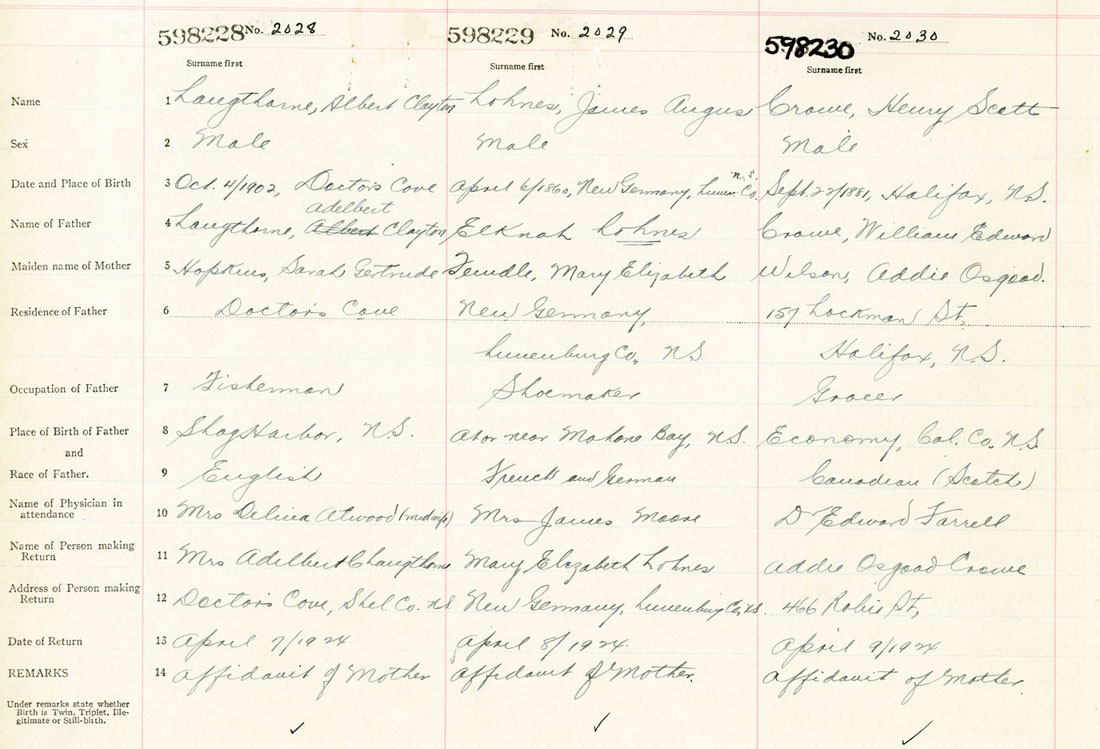 598228 No. 2028 598229 No. 2029 598230 No. 2030
Surname first Surname first Surname first
Name 1 Langthorne, Albert Clayton Lohnes, James Angus Crowe, Henry Scott
Sex 2 Male Male Male
Date and Place of Birth 3 Oct. 4/1902, Doctor's Cove April 6/1860, New Germany, Lunen. Co. N.S. Sept. 22/1881, Halifax, N.S.
Adelbert
Name of Father 4 Langthorne, Albert Clayton Elknah Lohnes Crowe, William Edward
Maiden name of Mother 5 Hopkins, Sarah Gertrude Mary Elizabeth Wilson, Addie Osgood.
Residence of Father 6 Doctor's Cove New Germany, 157 Lockman St,
Lunenburg Co., NS Halifax, N.S.
Occupation of Father 7 Fisherman Shoemaker Grocer
Place of Birth of Father 8 Shag Harbor, N.S. at or near Mahone Bay, N.S. Economy, Col. Co. N.S
and
Race of Father. 9 English French and German Canadian (Scotch)
Name of Physician in
attendance 10 Mrs Delina Atwood (midwife) Mrs James Moore Dr Edward Farrell
Name of Person making
Return 11 Mrs Adelbert C Langthorne Mary Elizabeth Lohnes Addie Osgood Crowe
Address of Person making
Return 12 Doctor's Cove, Shel Co. N.S. New Germany, Lunenburg Co. N.S. 466 Robie St,
Date of Return 13 April 7/1924 April 8/1924. April 9/1924
REMARKS 14 Affidavit of Mother Affidavit of Mother. Affidavit of Mother.
Under remarks state whether
Birth is Twin, Triplet, Ille-
gitimate or Still-birth.